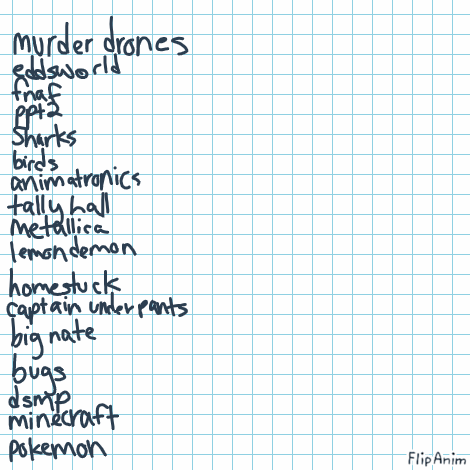 murder drones
eddsworld
fnaf
ppt2
Sharks
birds
animatronics
tally hall
metallica
lemon demon
homestuck
captain underpants
big nate
bugs
dsmp
minecraft
pokemon
FlipAnim